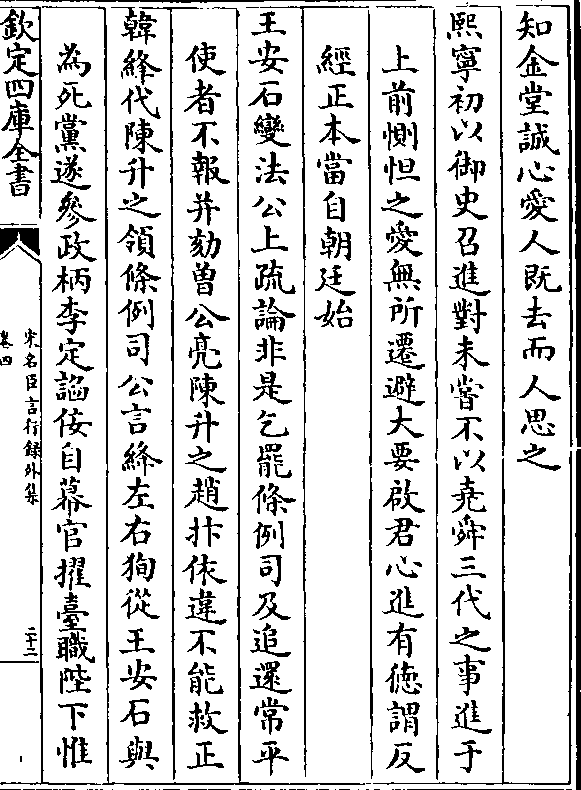 知金堂誠心愛人既去而人思之
熙寧初以御史召進對未嘗不以堯舜三代之事進于
上前惻怛之愛無所遷避大要啟君心進有徳謂反
經正本當自朝廷始
王安石變法公上疏論非是乞罷條例司及追還常平
使者不報并劾曽公亮陳升之趙抃依違不能救正
韓絳代陳升之領條例司公言絳左右狥從王安石與
為死黨遂參政柄李定謟佞自幕官擢臺職陛下惟
欽定四庫全書
宋名臣言行録外集
卷四
二十二